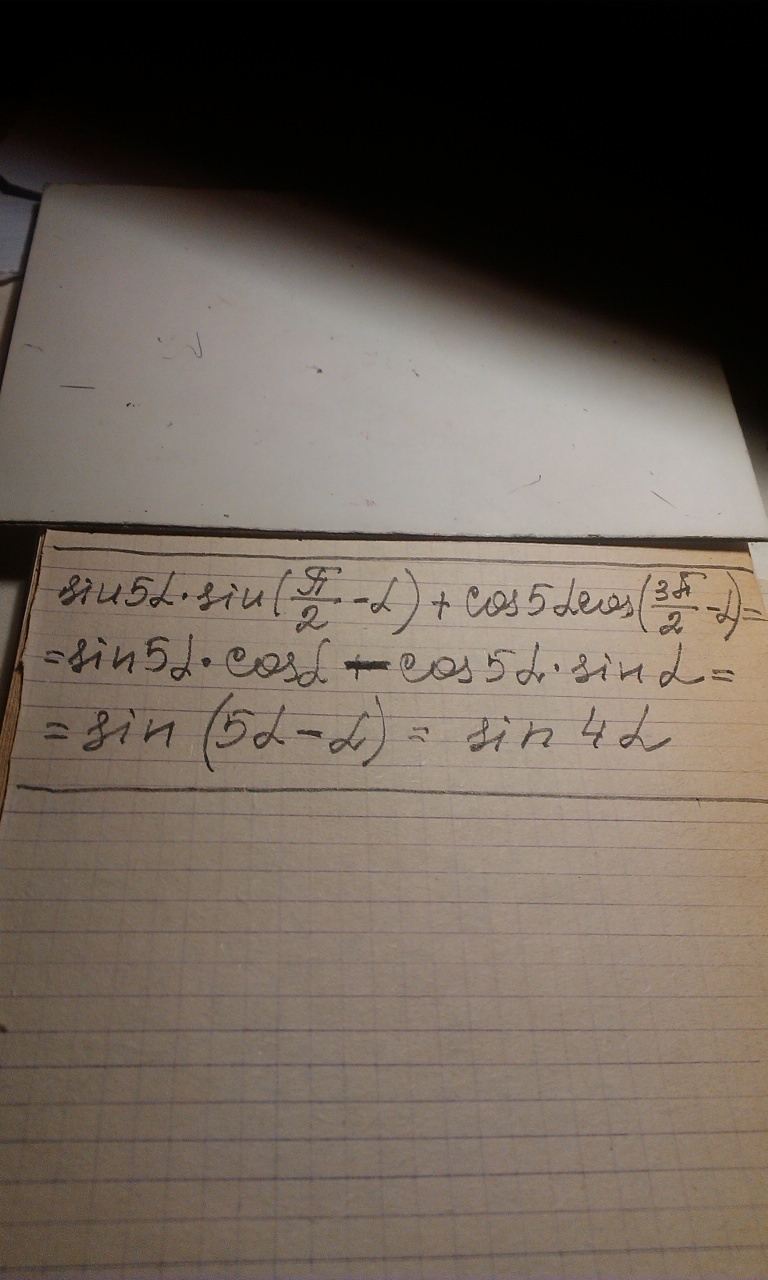 sin5α·sin(π/2-α)+cos5αcos(3π/2-α)=
=sin5α·cosα-cos5α·sinα=
=sin(5α-α)=sin4α